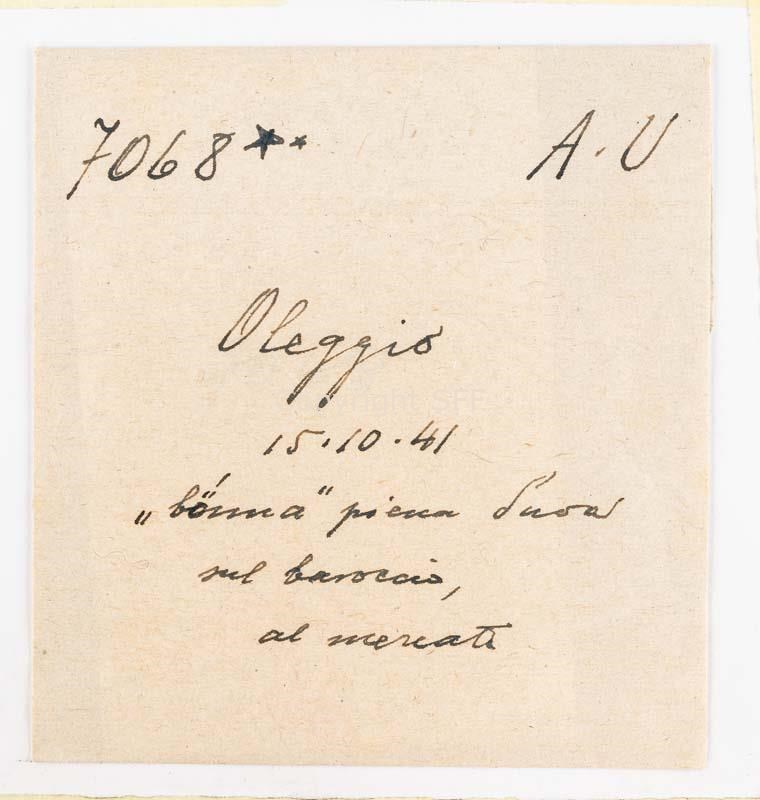 7068** A·U
Oleggio
15·10·41
„bö́nna" piena d'uva
sul baroccio,
al mercato